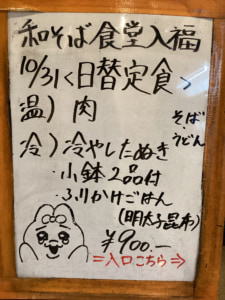 和そば食堂入福
10/31<日替定食>
温）肉
そば
・うどん
冷）冷やしたぬき
・小鉢2品付
・ふりかけごはん
(明太子昆布)
¥900.—
=入口こちら⇒